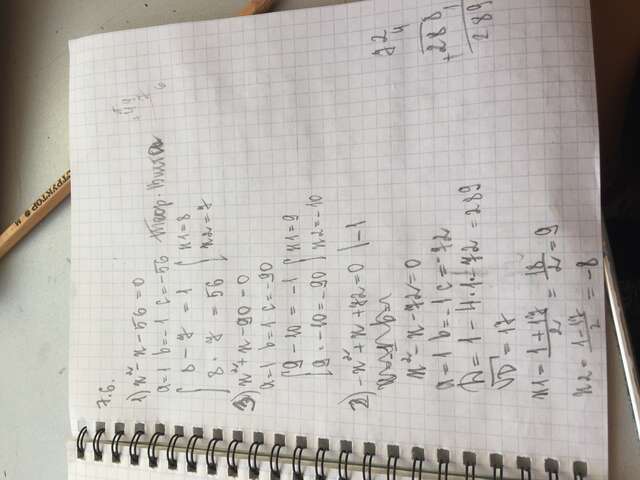 СТРУКТОР М
7.6.
1) x²-x-56=0
a=1 b=-1 c=-56 Теор. Виета
{ 8 - 7 = 1 { x1=8
8 · 7 = 56 x2=7
3) x²+x-90=0
a=1 b=1 c=-90
{ 9-10=-1 { x1=9
9·-10=-90 x2=-10
2) -x²+x+72=0 |-1
x²-x-72=0
a=1 b=-1 c=-72
D=1-4·1·-72=289
√D=17
x1=1+17/2=18/2=9
x2=1-17/2=-8
72
4
288
+ 1
289